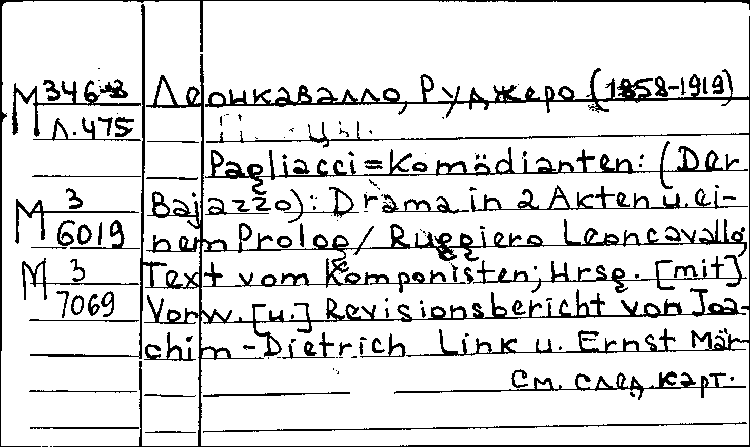 М 346-3 Леонкавалло, Руджеро (1858-1919)
Л.475
Pagliacci=Komödianten: (Der
М 3 6019 Bajazzo): Drama in 2 Akten u. ei-
nem Prolog/ Ruggiero Leoncavallo
М 3 7069 Text vom Komponisten; Hrsg. [mit]
Vorw. [u.] Revisionsbericht von Joa-
chim-Dietrich Link u. Ernst Mär-
См. след. карт.